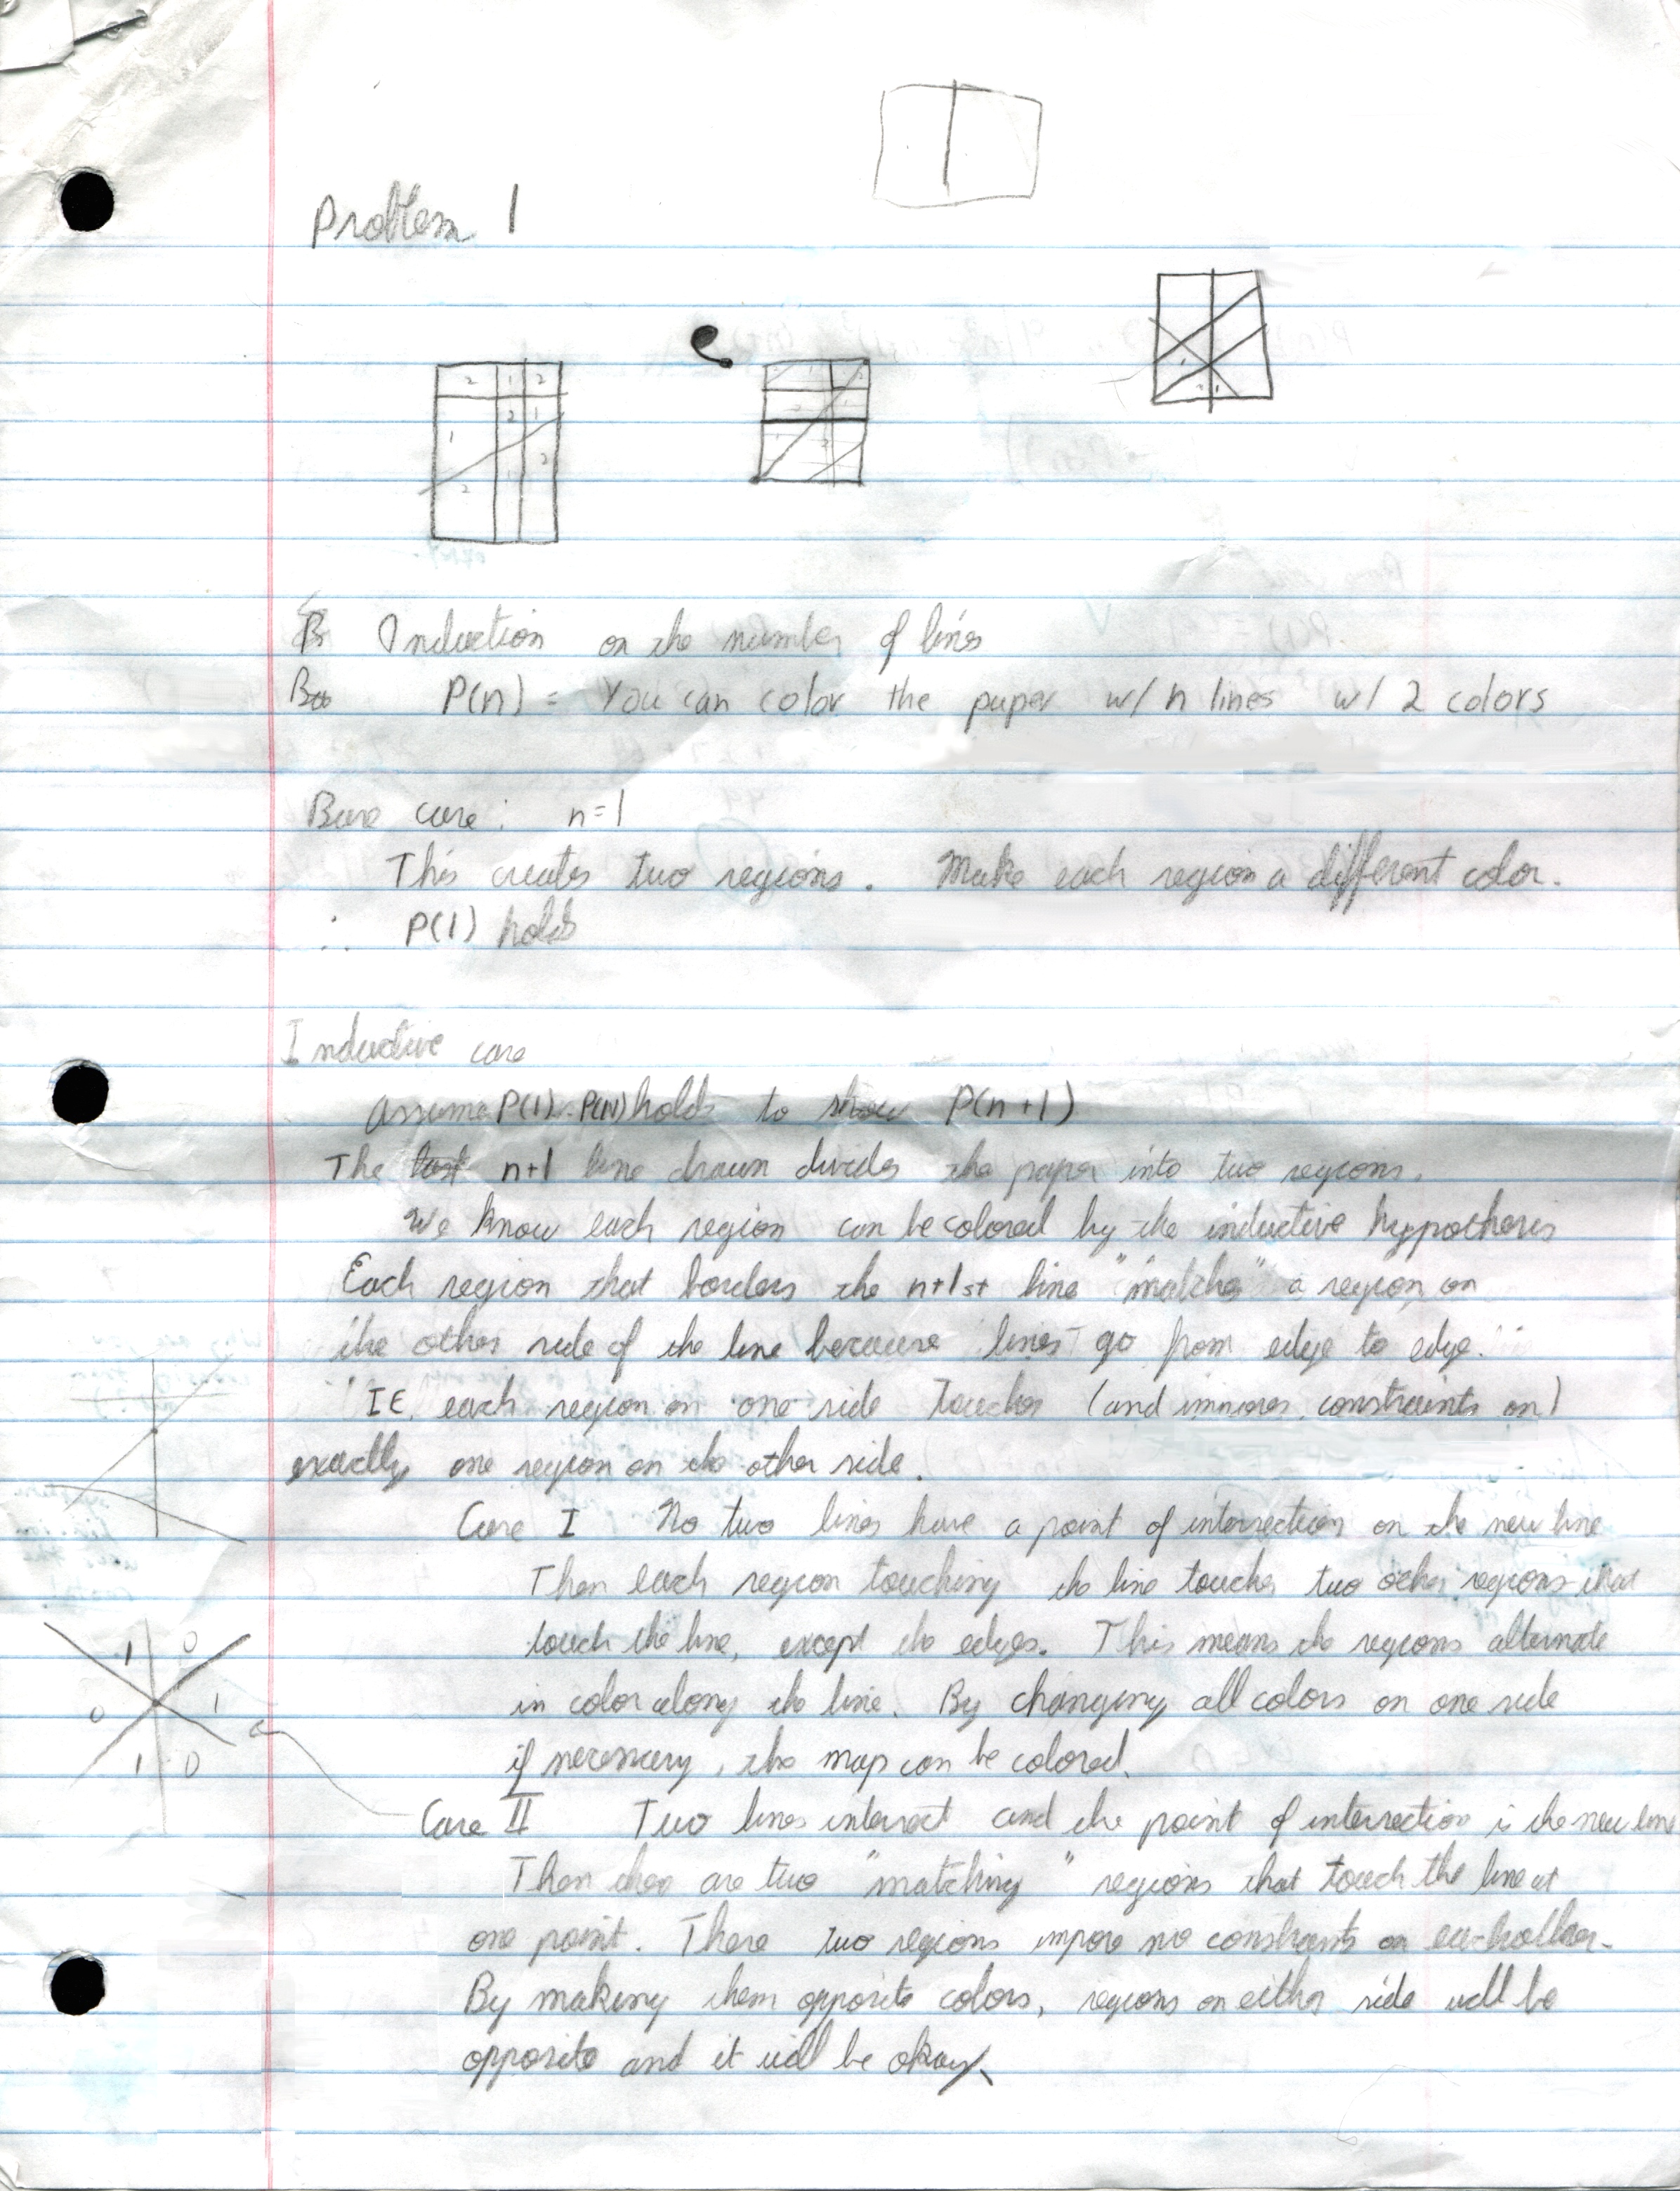 Problem 1
2 1 2
2 1
1
2
2
Induction on the number of lines
P(n) = You can color the paper w/ n lines w/ 2 colors
Base case: n=1
This creates two regions. Make each region a different color.
∴ P(1) holds
Inductive case
Assume P(1)..P(n) holds to show P(n+1)
The last n+1 line drawn divides the paper into two regions.
We know each region can be colored by the inductive hypothesis
Each region that borders the n+1st line "matches" a region on
the other side of the line because lines go from edge to edge.
IE. each region on one side touches (and constraints on)
exactly one region on the other side.
Case I No two lines have a point of intersection on the new line
Then each region touching the line touches two other regions that
touch the line, except the edges. This means the regions alternate
in color along the line. By changing all colors on one side
if necessary, the map can be colored.
1 0
0 1
1 0
Case II Two lines intersect and the point of intersection is the new line
Then there are two "matching" regions that touch the line at
one point. These two regions impose no constraints on eachother.
By making them opposite colors, regions on either side will be
opposite and it will be okay.